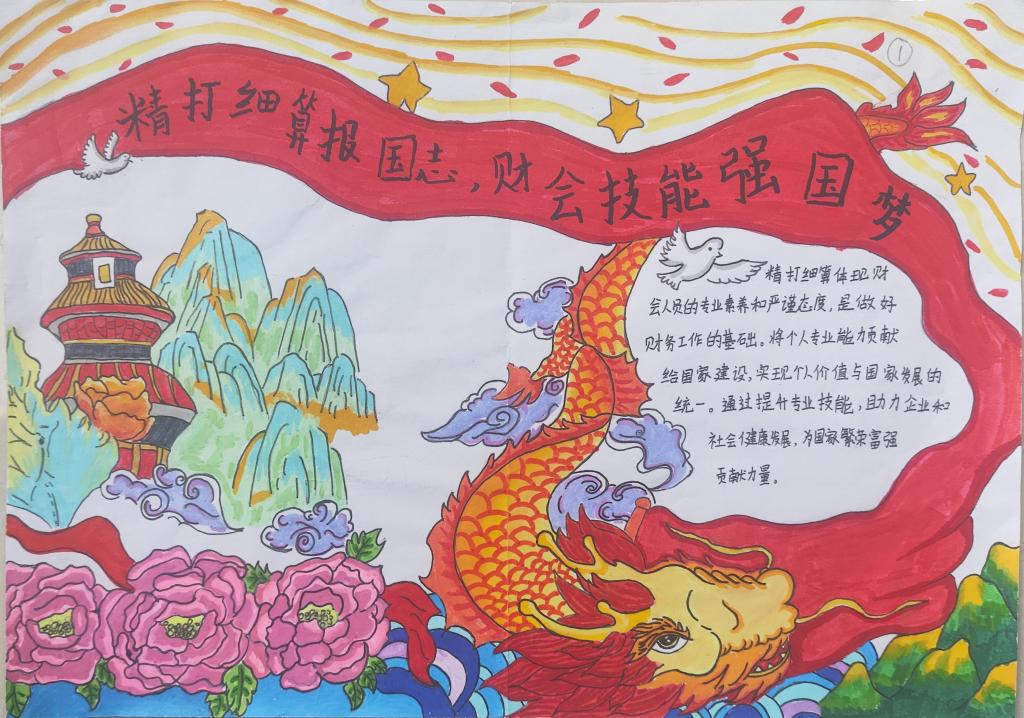 ①
精打细算报国志,财会技能强国梦
精打细算体现财
会人员的专业素养和严谨态度,是做好
财务工作的基础。将个人专业能力贡献
给国家建设,实现个人价值与国家发展的
统一。通过提升专业技能,助力企业和
社会健康发展,为国家繁荣富强
贡献力量。